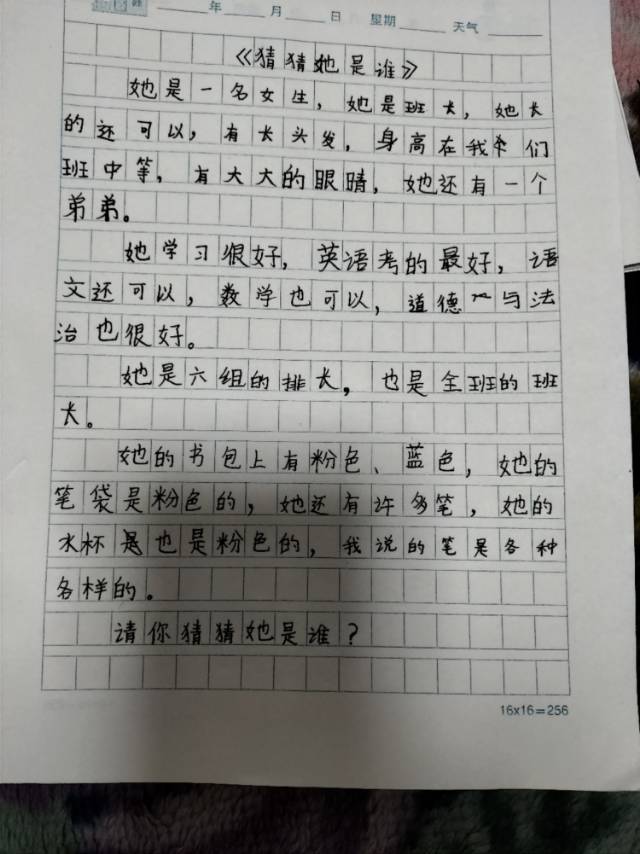 年 月 日 星期 天气
《猜猜她是谁》
她是一名女生，她是班长，她长
的还可以，有长头发，身高在我们
班中等，有大大的眼睛，她还有一个
弟弟。
她学习很好，英语考的最好，语
文还可以，数学也可以，道德与法
治也很好。
她是六组的排长，也是全班的班
长。
她的书包上有粉色、蓝色，她的
笔袋是粉色的，她还有许多笔，她的
水杯也是粉色的，我说的笔是各种
各样的。
请你猜猜她是谁？
16x16=256